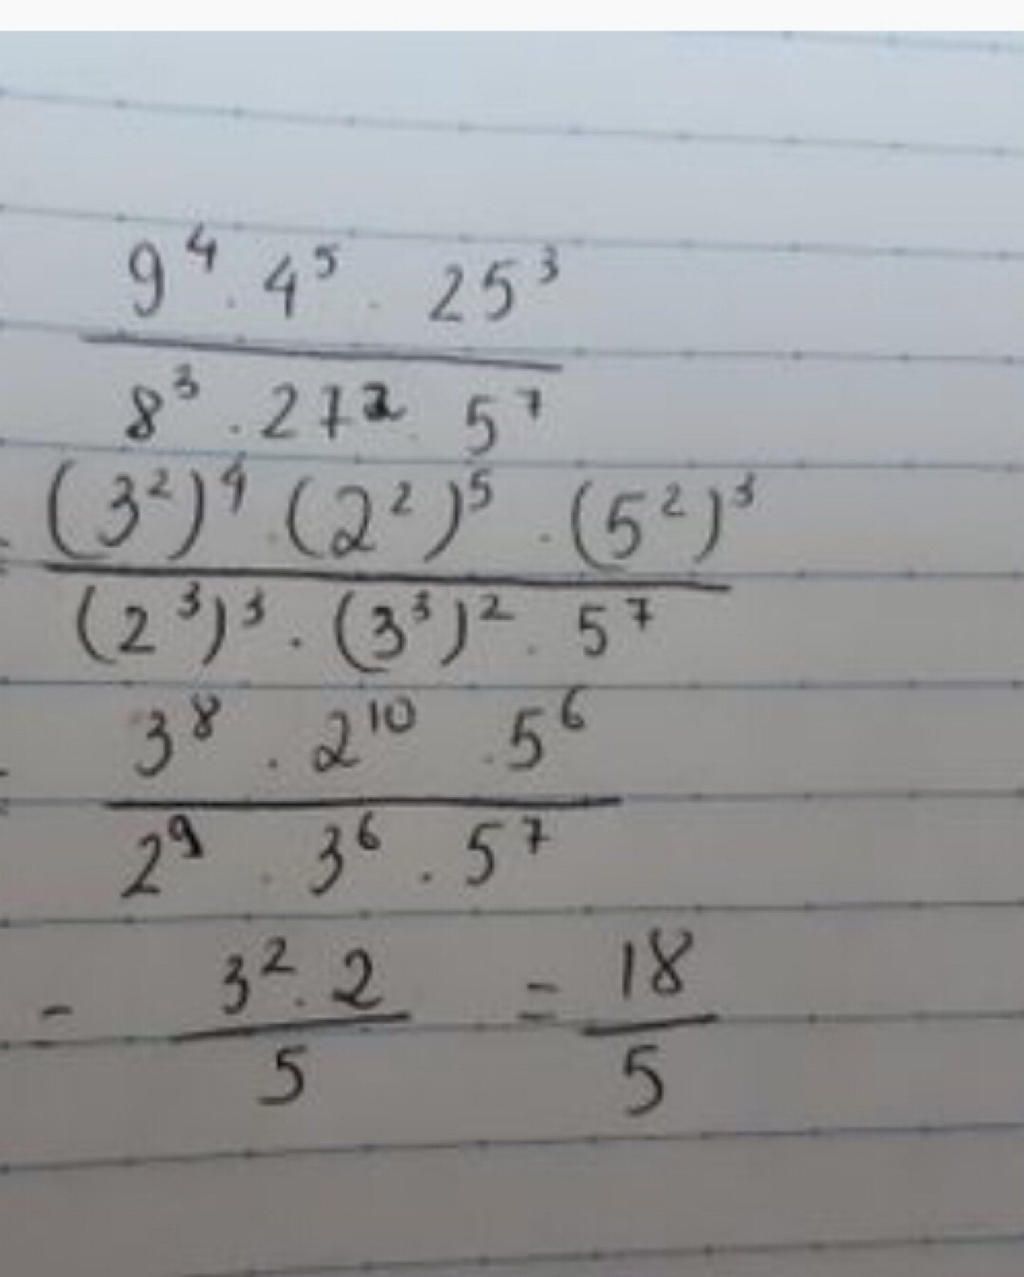 9⁴ . 4⁵ . 25³
8³ . 27² . 5⁷
= (3²)⁴ . (2²)⁵ . (5²)³
(2³)³ . (3³)² . 5⁷
= 3⁸ . 2¹⁰ . 5⁶
2⁹ . 3⁶ . 5⁷
- 3² . 2 = 18
5 5